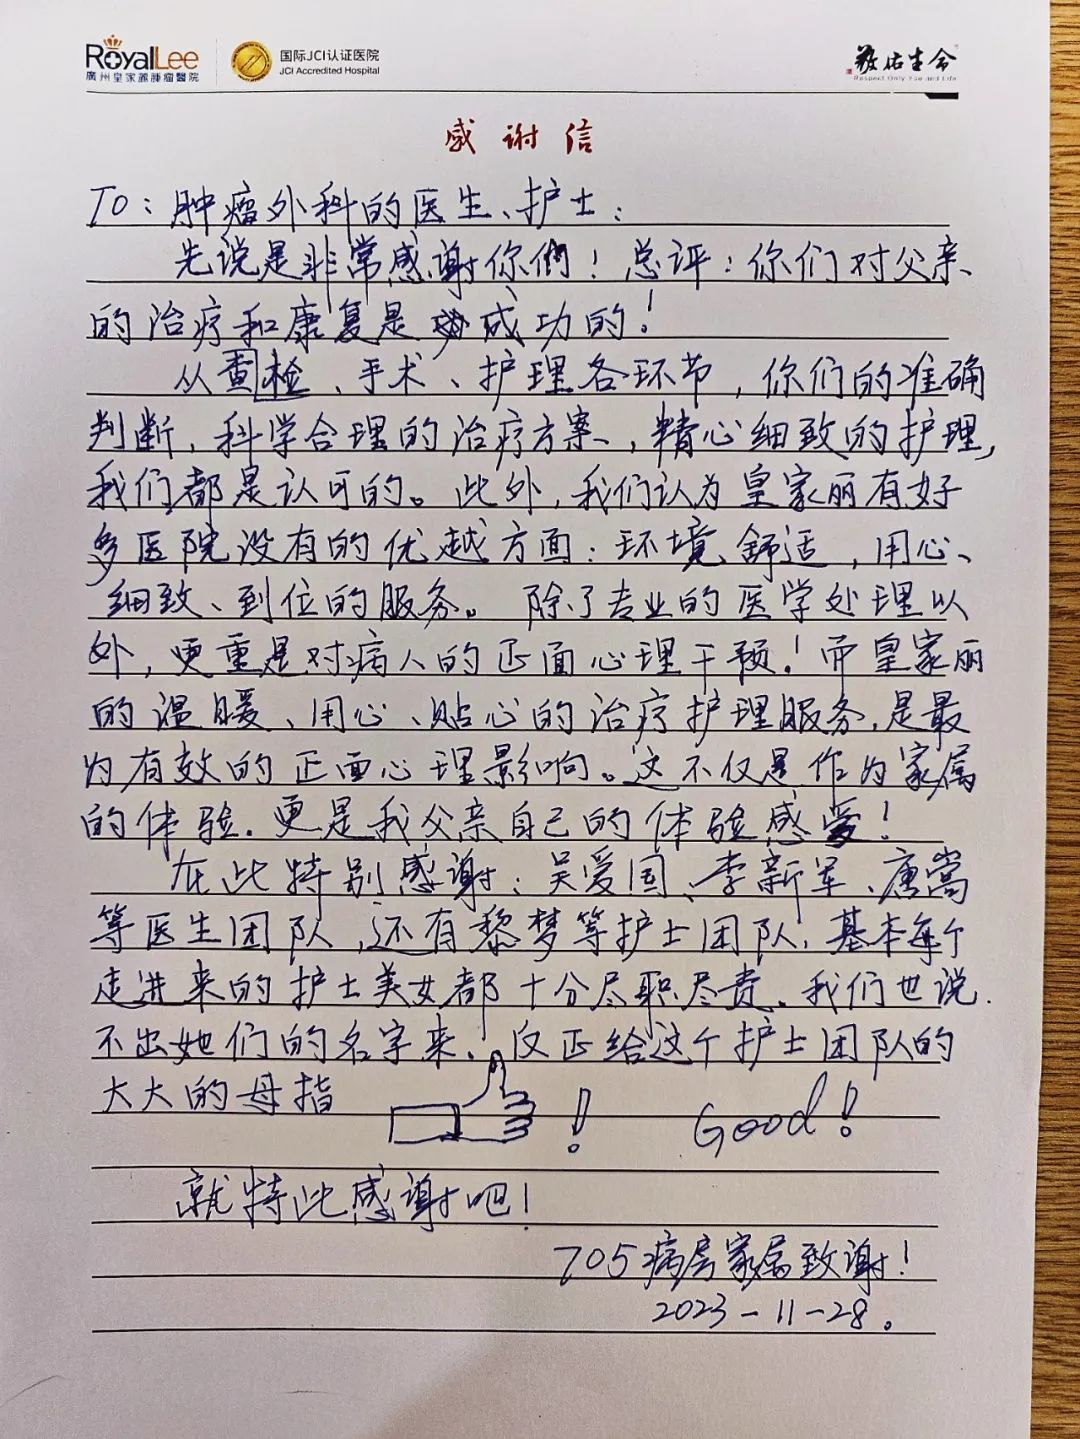 RoyalLee
廣州皇家麗腫瘤醫院
国际JCI认证医院
JCI Accredited Hospital
敬佑生命
Respect Only You and Life
感谢信
TO：肿瘤外科的医生、护士：
先说是非常感谢你们！总评：你们对父亲
的治疗和康复是成功的！
从查检、手术、护理各环节，你们的准确
判断，科学合理的治疗方案，精心细致的护理，
我们都是认可的。此外，我们认为皇家丽有好
多医院没有的优越方面：环境舒适，用心、
细致、到位的服务。除了专业的医学处理以
外，更重是对病人的正面心理干预！而皇家丽
的温暖、用心、贴心的治疗护理服务，是最
为有效的正面心理影响。这不仅是作为家属
的体验．更是我父亲自己的体验感受！
在此特别感谢：吴爱国、李新军、唐嵩
等医生团队，还有黎梦等护士团队，基本每个
走进来的护士美女都十分尽职尽责．我们也说
不出她们的名字来．反正给这个护士团队的
大大的母指
！ Good！
就特此感谢吧！
705病房家属致谢！
2023－11－28。